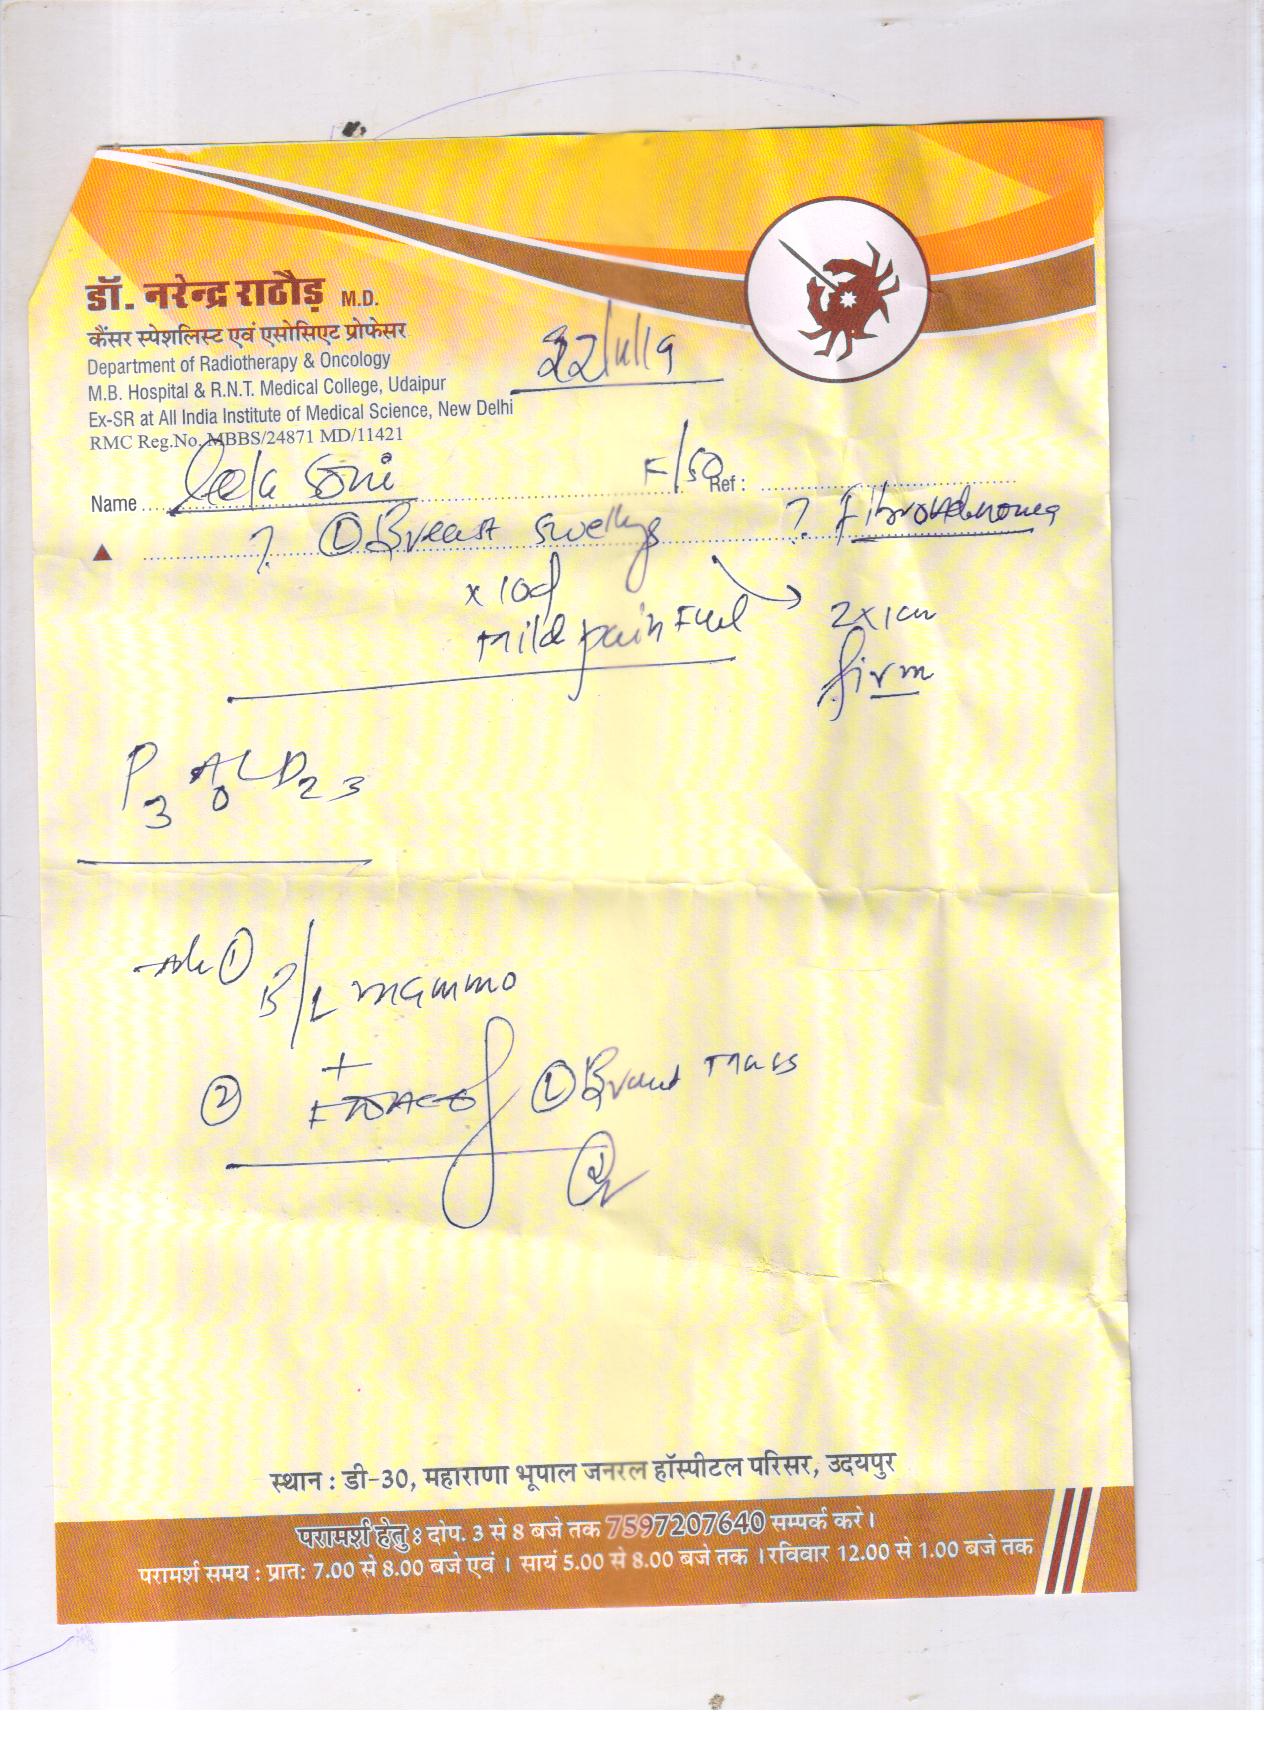 डॉ. नरेन्द्र राठौड़ M.D.
कैंसर स्पेशलिस्ट एवं एसोसिएट प्रोफेसर
Department of Radiotherapy & Oncology
M.B. Hospital & R.N.T. Medical College, Udaipur
Ex-SR at All India Institute of Medical Science, New Delhi
RMC Reg.No. MBBS/24871 MD/11421
22/11/19
Name Leela Soni F/50 Ref :
? Ⓛ Breast swelling ? Fibroadenoma
x 10d
mild painful 2x1cm
firm
P3 A0 L D23
Adv ① B/L mammo
+
② Ⓛ Breast mass
स्थान : डी-30, महाराणा भूपाल जनरल हॉस्पीटल परिसर, उदयपुर
परामर्श हेतु : दोप. 3 से 8 बजे तक 7597207640 सम्पर्क करे।
परामर्श समय : प्रातः 7.00 से 8.00 बजे एवं । सायं 5.00 से 8.00 बजे तक । रविवार 12.00 से 1.00 बजे तक